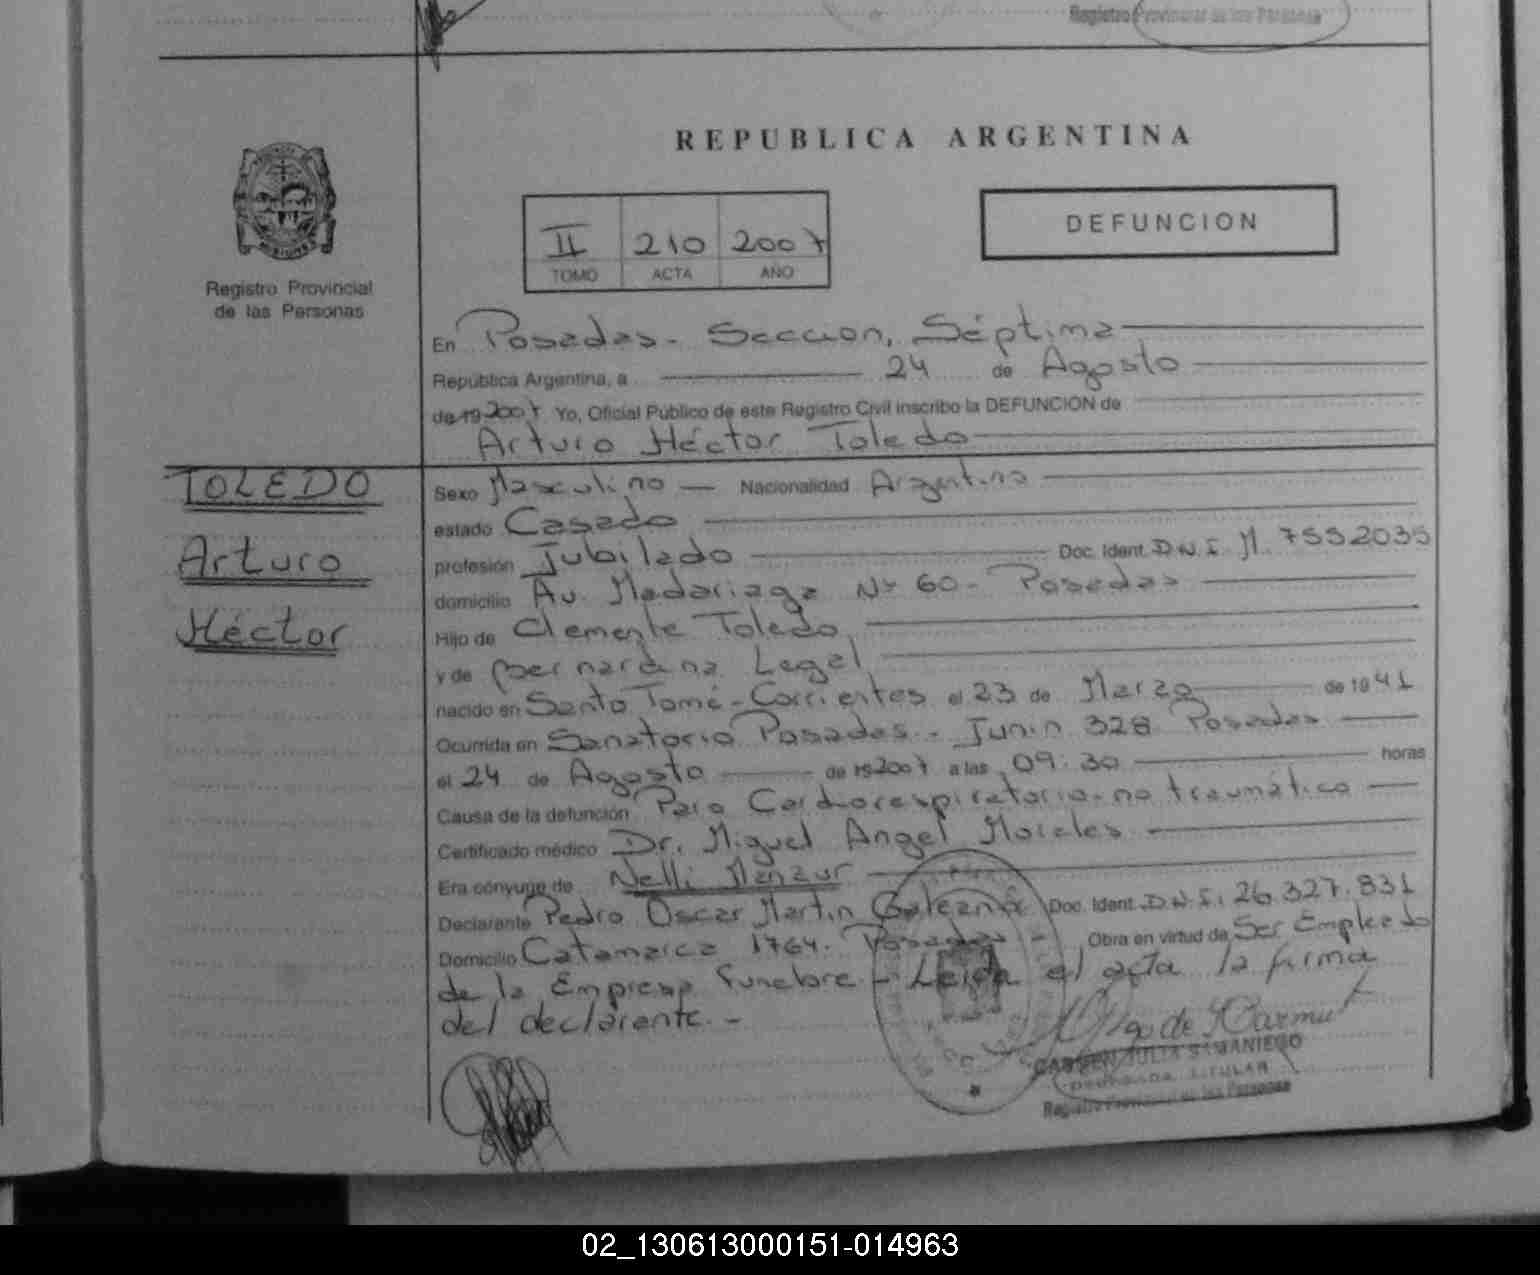 Registro Provincial de las Personas
REPUBLICA ARGENTINA
II 210 2007
TOMO ACTA AÑO
DEFUNCION
Registro Provincial
de las Personas
En Posadas - Seccion, Séptima
República Argentina, a 24 de Agosto
de 19 2007 Yo, Oficial Público de este Registro Civil inscribo la DEFUNCION de
Arturo Héctor Toledo
TOLEDO
Arturo
Héctor
Sexo Masculino — Nacionalidad Argentina
estado Casado
profesión Jubilado Doc. Ident. D.N.I. M. 7552035
domicilio Av. Madariaga Nº 60 - Posadas
Hijo de Clemente Toledo
y de Bernardina Legal
nacido en Santo Tomé - Corrientes el 23 de Marzo de 1941
Ocurrida en Sanatorio Posadas - Junin 328 Posadas
el 24 de Agosto de 19 2007 a las 09:30 horas
Causa de la defunción Paro Cardiorespiratorio - no traumático
Certificado médico Dr. Miguel Angel Morales
Era cónyuge de Nelli Manzur
Declarante Pedro Oscar Martin Galeano Doc. Ident. D.N.I. 26.327.831
Domicilio Catamarca 1764. Posadas - Obra en virtud de Ser Empleado
de la Empresa Funebre - Leida el acta la firma
del declarante. -
CARMEN JULIA SAMANIEGO
TITULAR
Registro Provincial de las Personas
02_130613000151-014963